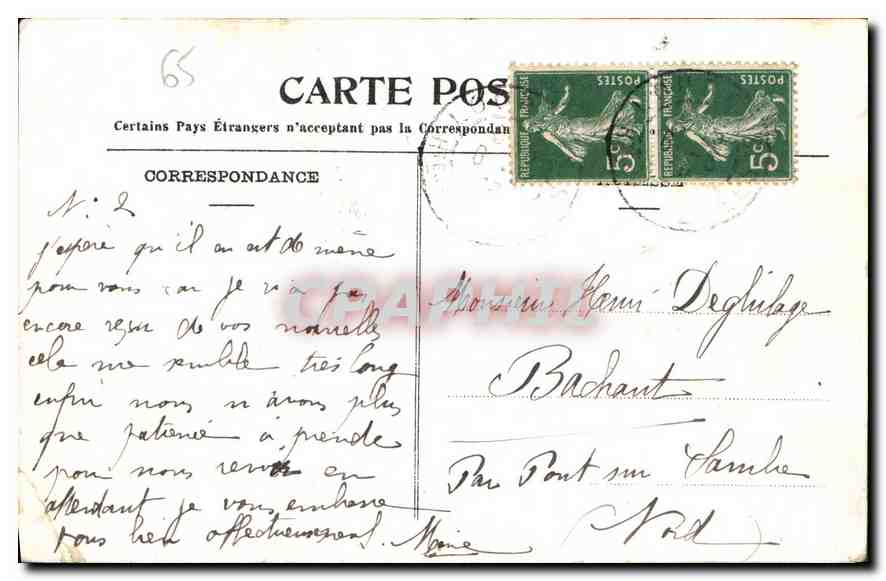 65
CARTE POS
Certains Pays Étrangers n'acceptent pas la Correspondan
CORRESPONDANCE
N: 2
j'espère qu'il en est de même
pour vous car je n'ai pas
encore reçu de vos nouvelles
cela me semble très long
enfin nous n'avons plus
que patience à prendre
pour nous revoir en
attendant je vous embrasse
tous bien affectueusement
POSTES
REPUBLIQUE FRANÇAISE
5c
POSTES
REPUBLIQUE FRANÇAISE
5c
Monsieur Henri Deghilage
Bachant
Par Pont sur Sambre
Nord
CPAPHIL